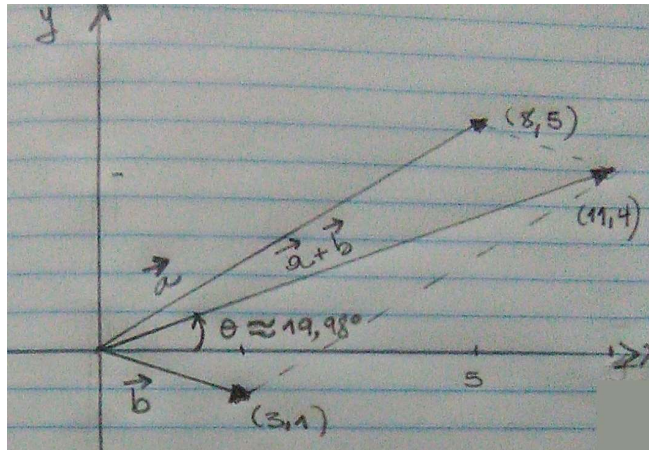 y
(8,5)
(11,4)
a
a+b
θ≈19,98°
5
b
(3,1)